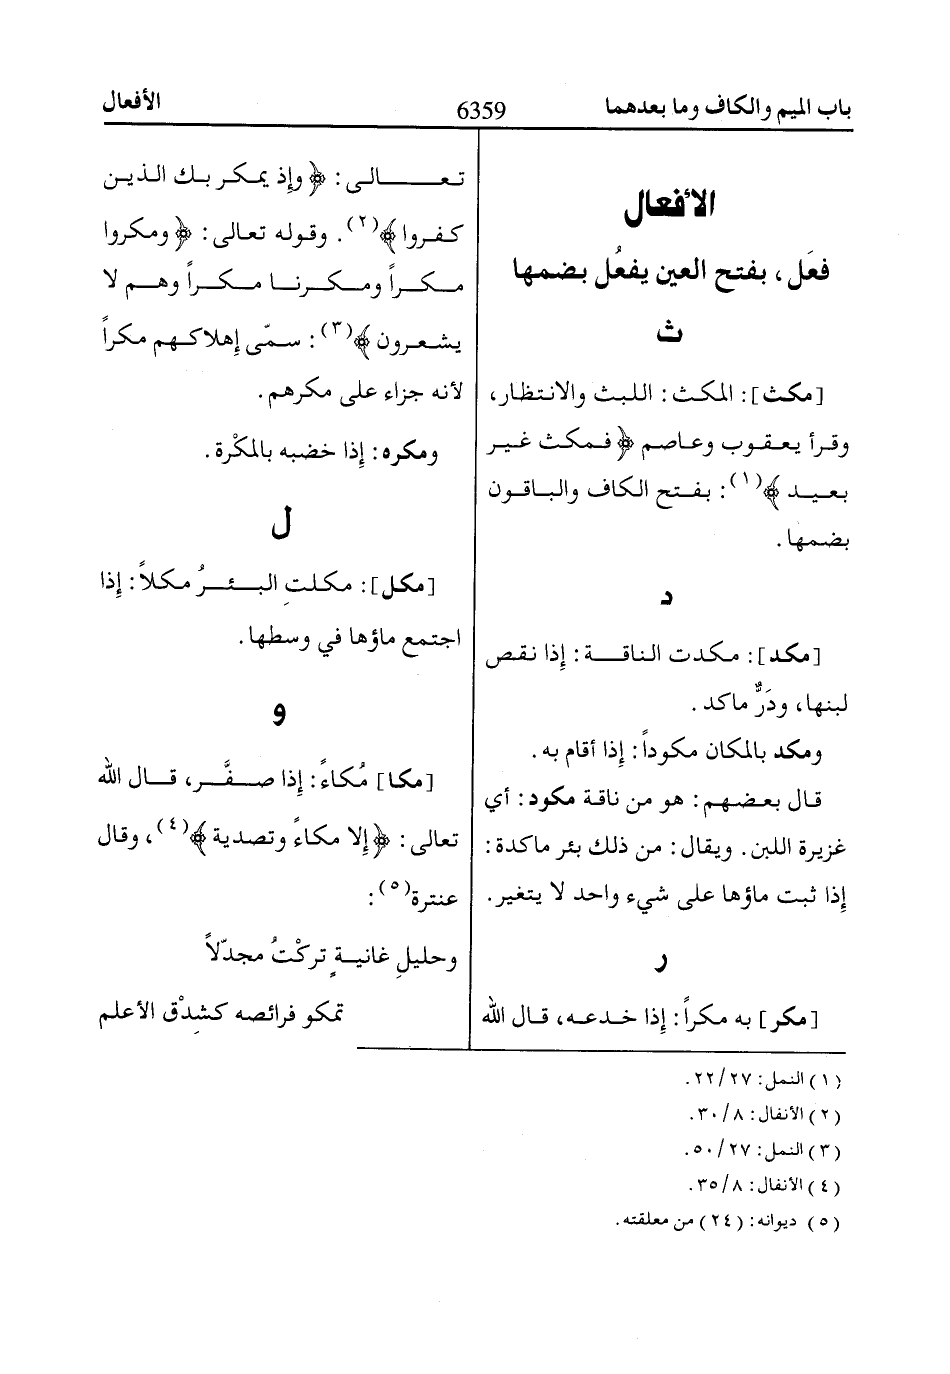 باب الميم والكاف وما بعدهما
6359
الأفعال
الأفعال
فعَل، بفتح العين يفعُل بضمها
ث
[مكث]: المكث: اللبث والانتظار،
وقرأ يعقوب وعاصم ﴿ فمكث غير
بعيد ﴾(١): بفتح الكاف والباقون
بضمها.
د
[مكد]: مكدت الناقة: إذا نقص
لبنها، ودَرٌّ ماكد.
ومكد بالمكان مكوداً: إذا أقام به.
قال بعضهم: هو من ناقة مكود: أي
غزيرة اللبن. ويقال: من ذلك بئر ماكدة:
إذا ثبت ماؤها على شيء واحد لا يتغير.
ر
[مكر] به مكراً: إذا خدعه، قال الله
تعالى: ﴿ وإذ يمكر بك الذين
كفروا ﴾(٢). وقوله تعالى: ﴿ ومكروا
مكراً ومكرنا مكراً وهم لا
يشعرون ﴾(٣): سمّى إهلاكهم مكراً
لأنه جزاء على مكرهم.
ومكره: إذا خضبه بالمكْرة.
ل
[مكل]: مكلتِ البئرُ مكلاً: إذا
اجتمع ماؤها في وسطها.
و
[مكا] مُكاءً: إذا صفَّر، قال الله
تعالى: ﴿ إلا مكاءً وتصدية ﴾(٤)، وقال
عنترة(٥):
وحليلِ غانيةٍ تركْتُ مجدّلاً
تمكو فرائصه كشِدْق الأعلم
(١) النمل: ٢٧/ ٢٢.
(٢) الأنفال: ٨/ ٣٠.
(٣) النمل: ٢٧/ ٥٠.
(٤) الأنفال: ٨/ ٣٥.
(٥) ديوانه: (٢٤) من معلقته.